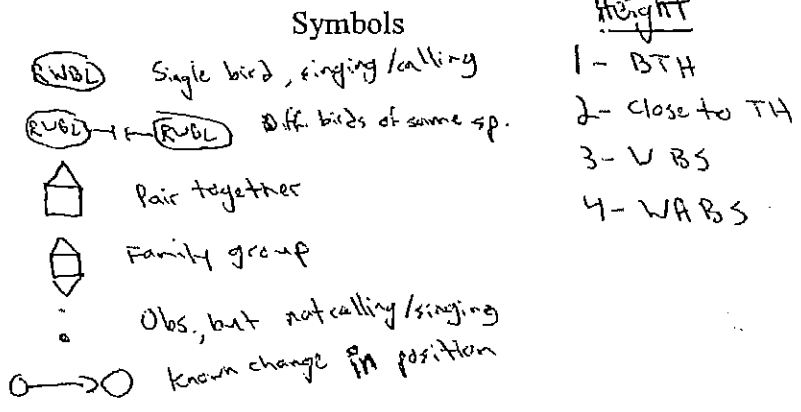 Symbols
RWBL Single bird, singing/calling
RWBL RWBL Diff. birds of same sp.
Pair together
Family group
Obs., but not calling/singing
Known change in position
Height
1- BTH
2- Close to TH
3- WBS
4- WABS